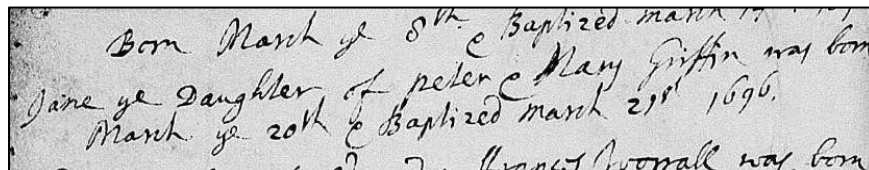 Born March ye 8th & Baptized march
Jane ye Daughter of peter & Mary Griffin was born
March ye 20th & Baptized march 21st 1696.
Frances Worrall was born